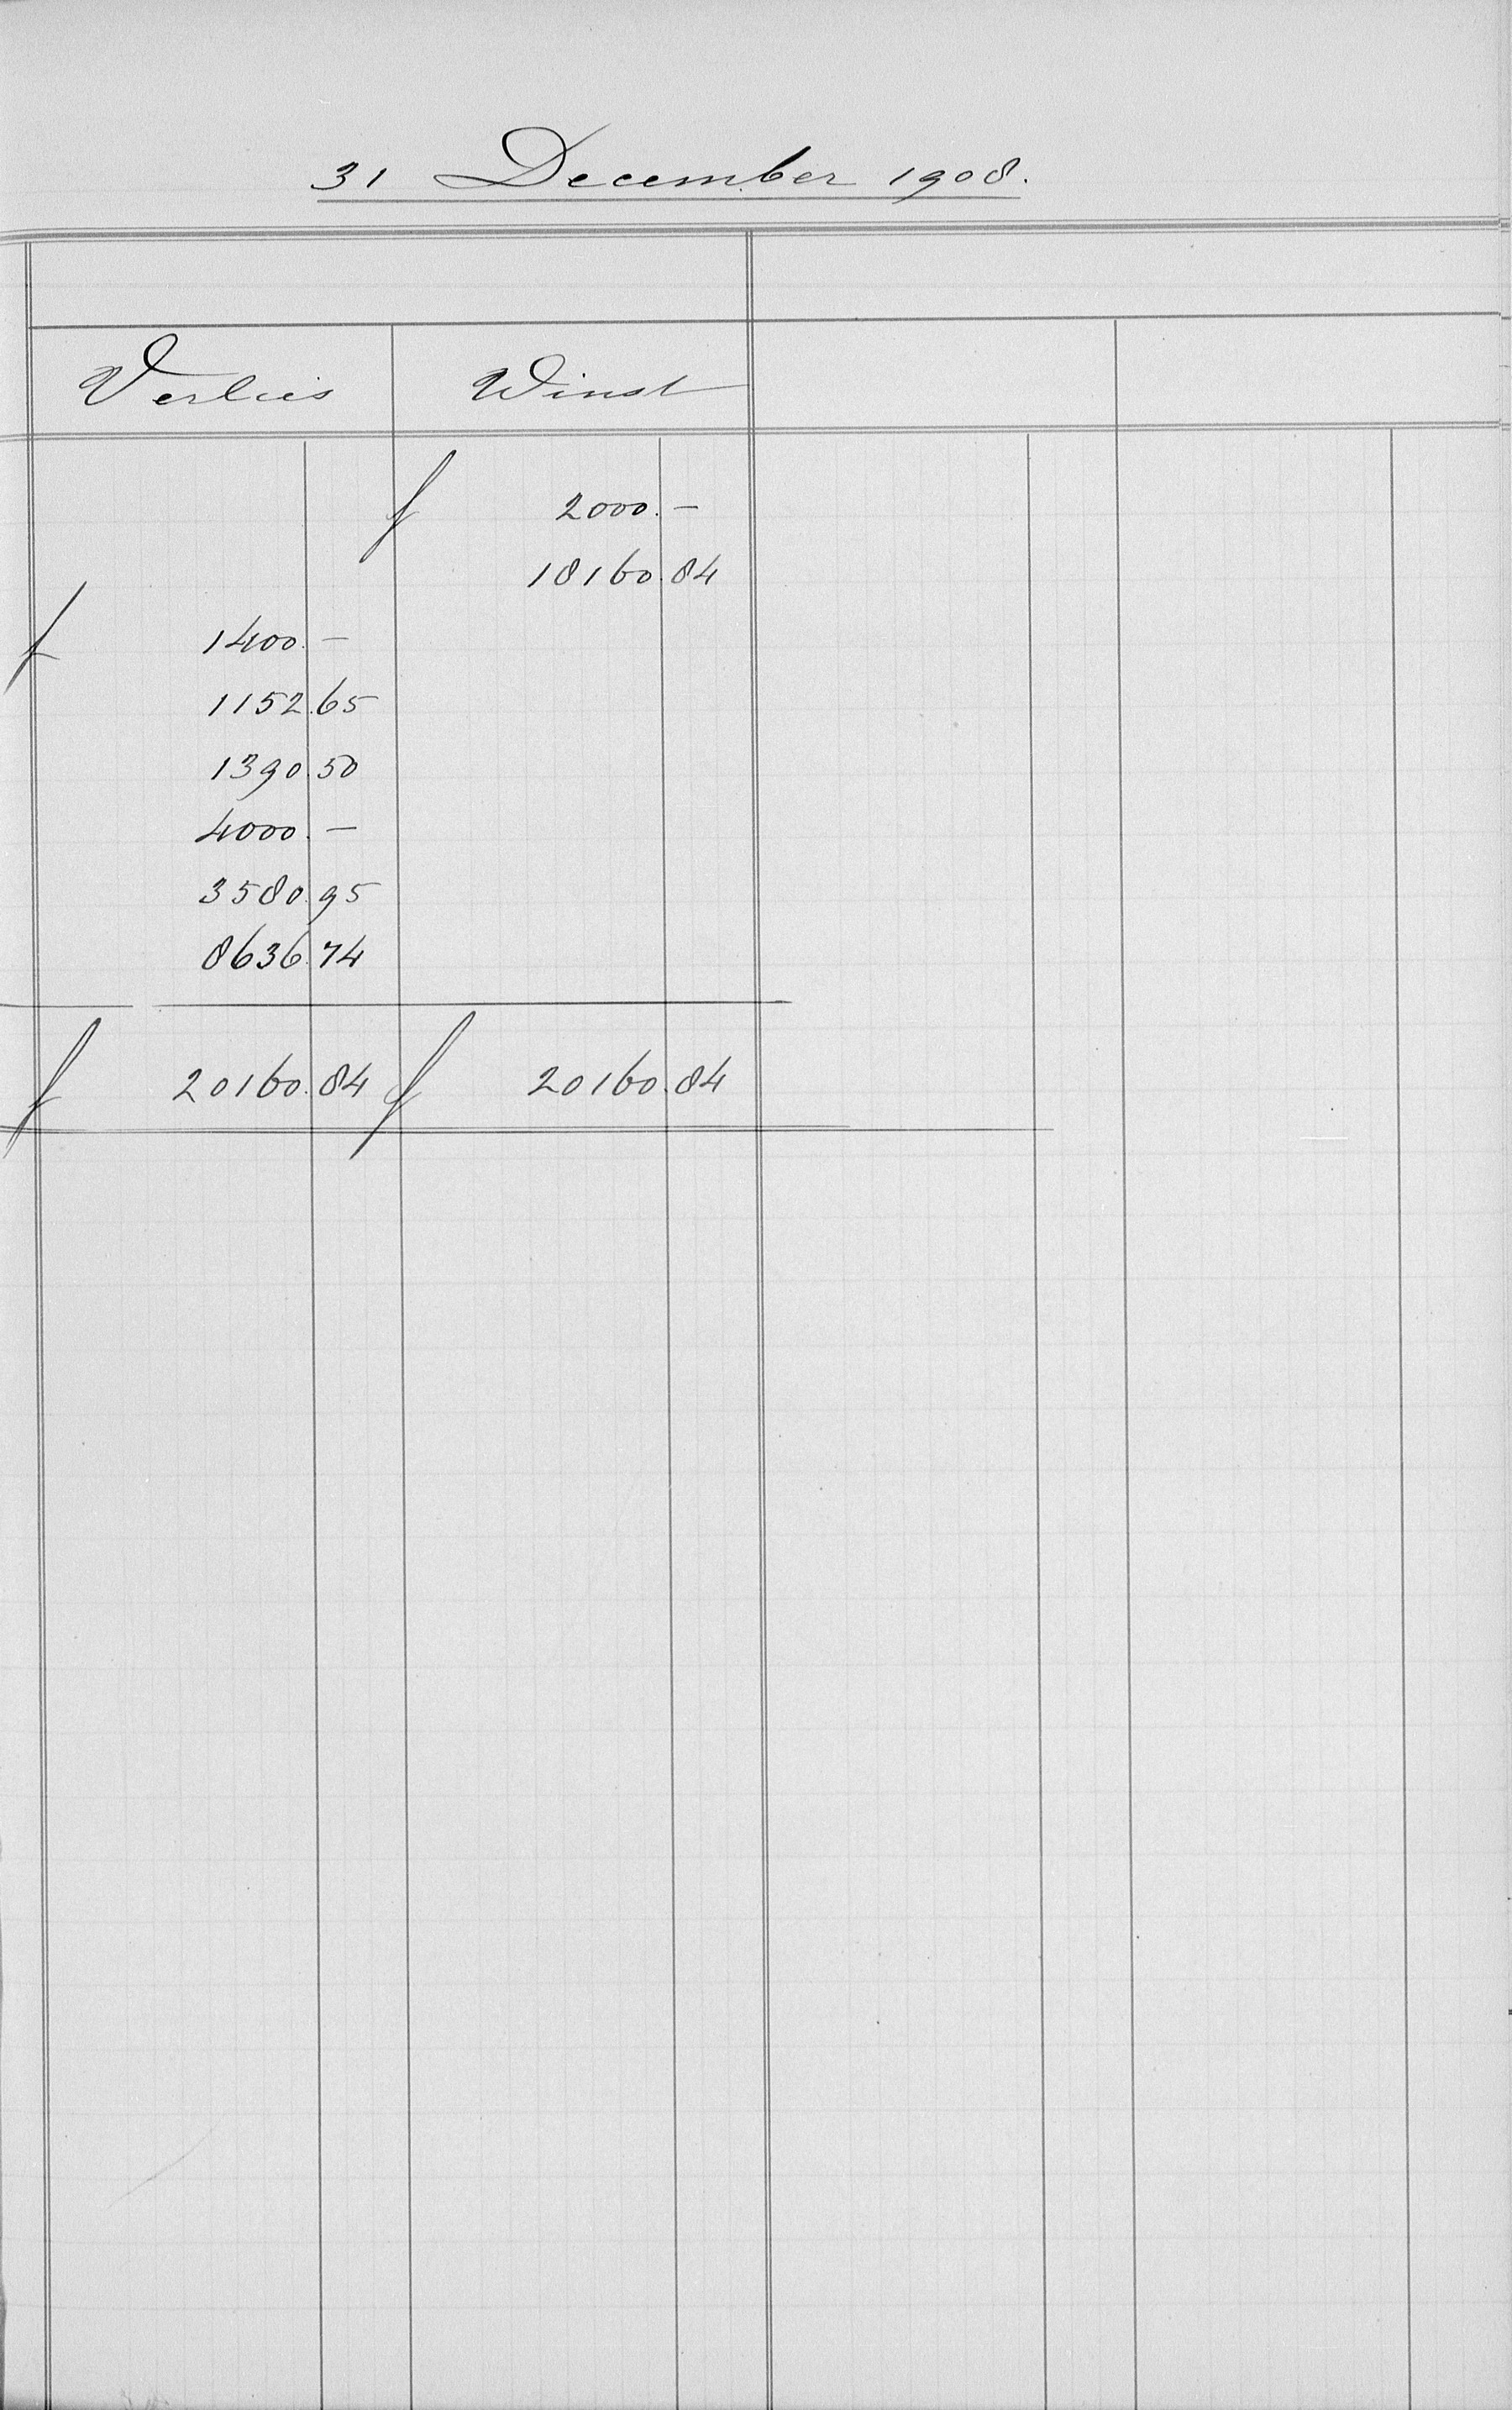 31 December 1908.
Verlies Winst
f 2000.-
18160.84
f 1400.-
1152.65
1390.50
4000.-
3580.95
8636.74
f 20160.84 f 20160.84